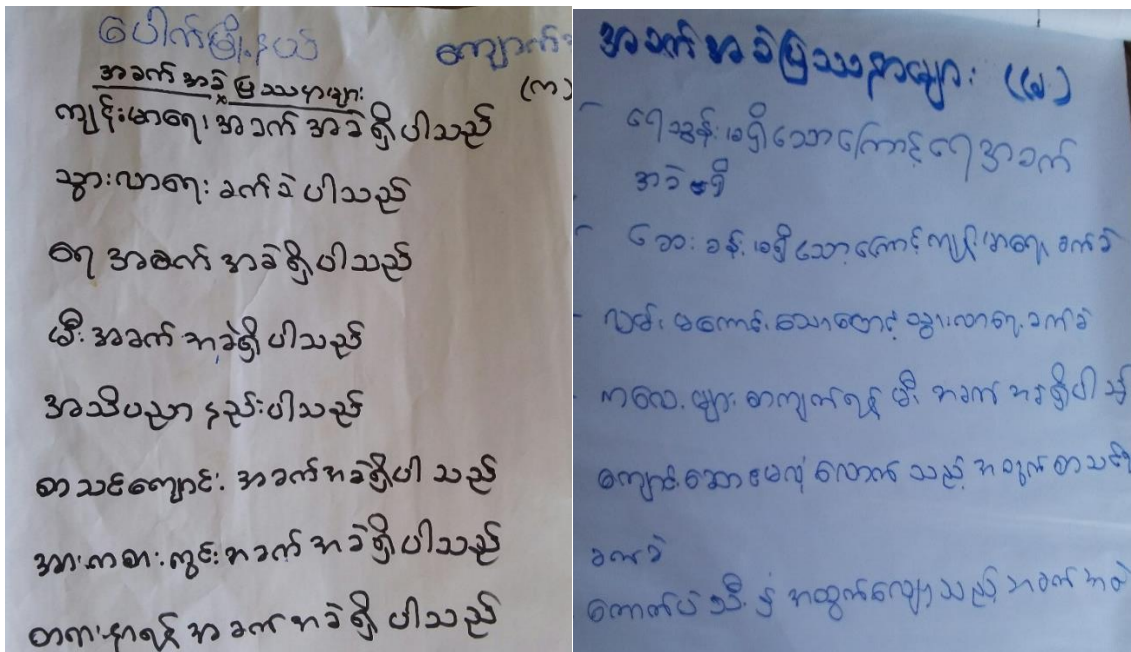 ပေါက်မြို့နယ်
ကျောက်
အခက်အခဲ ပြဿနာများ
(က)
ကျန်းမာရေး အခက် အခဲ ရှိ ပါသည်
သွားလာရေး ခက်ခဲ ပါသည်
ရေ အခက် အခဲ ရှိ ပါသည်
မီး အခက် အခဲ ရှိ ပါသည်
အသိပညာ နည်းပါသည်
စာသင်ကျောင်း အခက်အခဲရှိပါ သည်
အားကစားကွင်း အခက် အခဲ ရှိ ပါသည်
တရားနာရန် အခက် အခဲ ရှိ ပါသည်
အခက်အခဲပြဿနာများ (ခ)
- ရေတွင်းမရှိသောကြောင့်ရေအခက်
အခဲရှိ
- ဆေးခန်းမရှိသောကြောင့်ကျန်းမာရေးခက်ခဲ
- လမ်းမကောင်းသောကြောင့်သွားလာရေးခက်ခဲ
- ကလေးများ စာကျက်ရန် မီး အခက် အခဲရှိပါသည်
ကျောင်းဆောင်မလုံလောက် သည့် အတွက် စာသင်
ခက်ခဲ
ကောက်ပဲ သီးနှံ အထွက်လျော့သည့် အခက် အခဲ